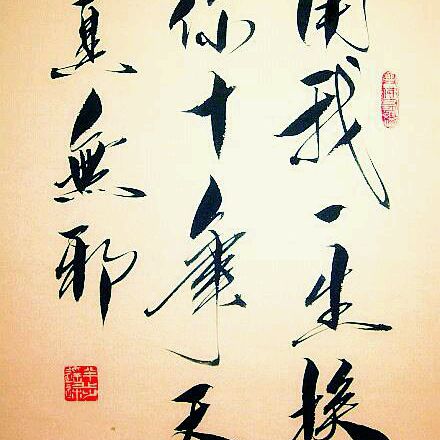 用我一生換
你十年天
真無邪